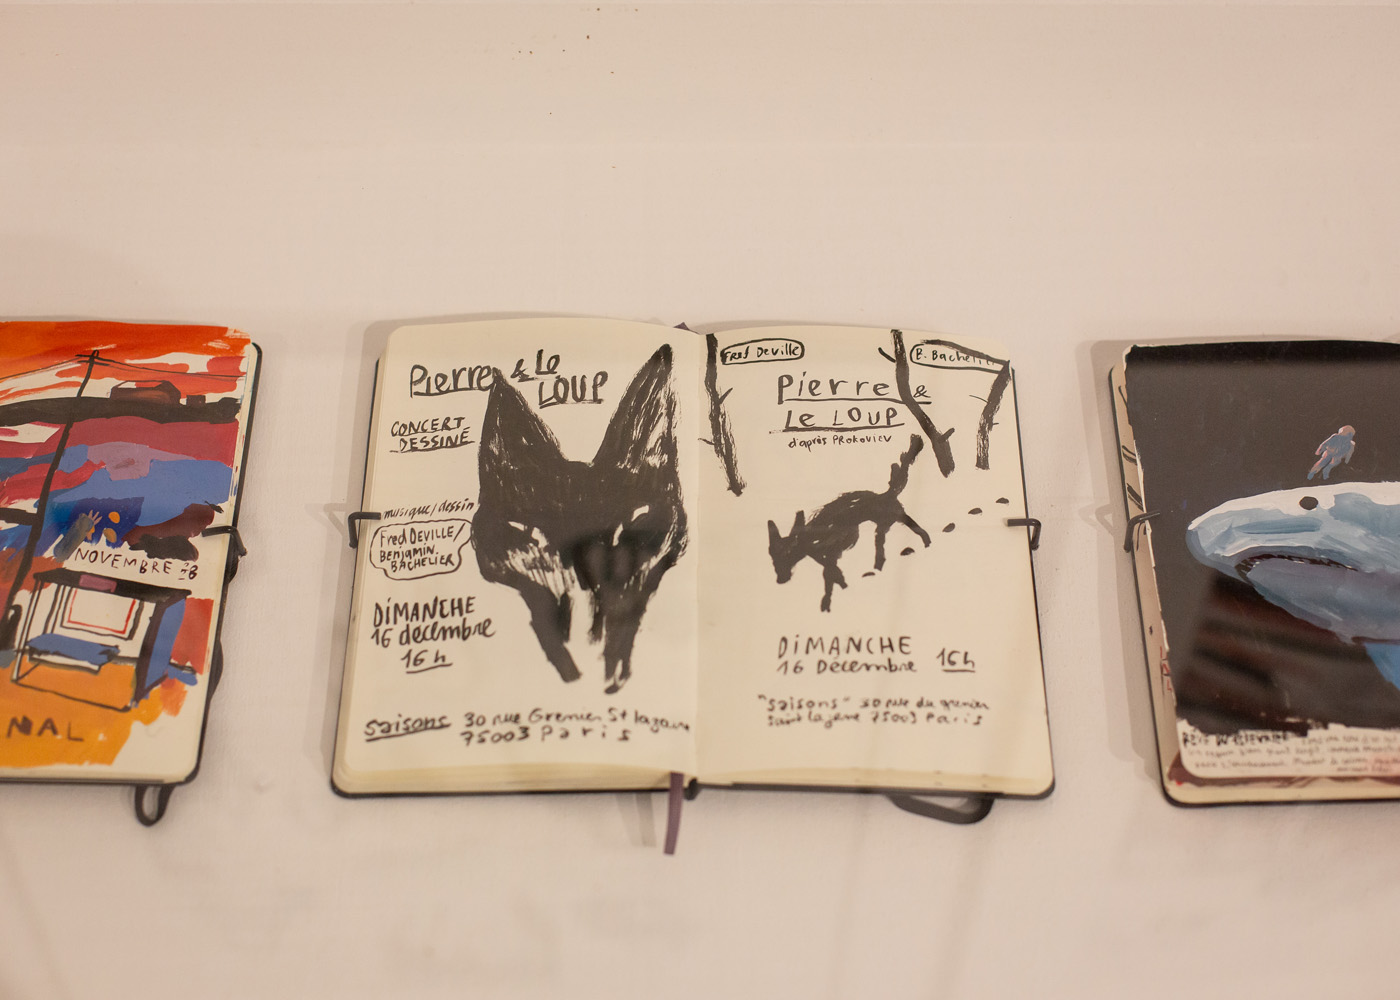 NOVEMBRE
NAL
Pierre & Le
LOUP
CONCERT
DESSINÉ
musique/dessin
Fred DEVILLE/
BENJAMIN
BACHELIER
DIMANCHE
16 décembre
16h
Saisons 30 rue Grenier St lazare
75003 Paris
Fred Deville
B. Bachelier
Pierre &
Le LOUP
d'après PROKOVIEV
DIMANCHE
16 Décembre 16h
"Saisons" 30 rue du grenier
Saint Lazare 75003 Paris